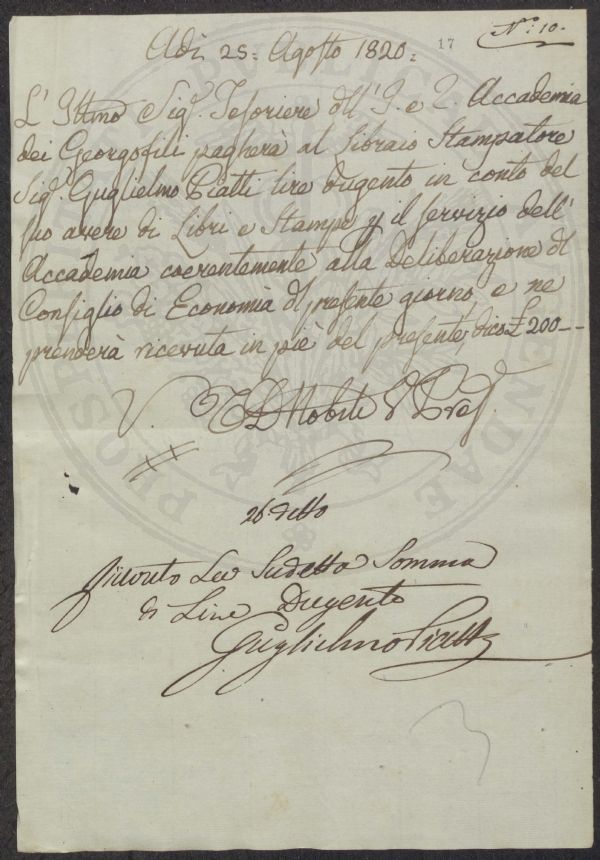 N.° 10.
17
Adì 25: Agosto 1820:
L' Ittmo Sig.r Tesoriere dll' I. e R. Accademia
dei Georgofili pagherà al Libraio Stampatore
Sig.r Guglielmo Piatti lire dugento in conto del
suo avere di Libri e Stampe p il servizio dell'
Accademia coerentemente alla Deliberazione dl
Consiglio di Economia dl presente giorno, e ne
prenderà ricevuta in piè del presente, dico £ 200 --
V. Nobili Pres.
26. detto
Ricevuto La Sudetta Somma
di Lire Dugento
Guglielmo Piatti
PUBLICAE
PROSPERITATI AUGENDAE